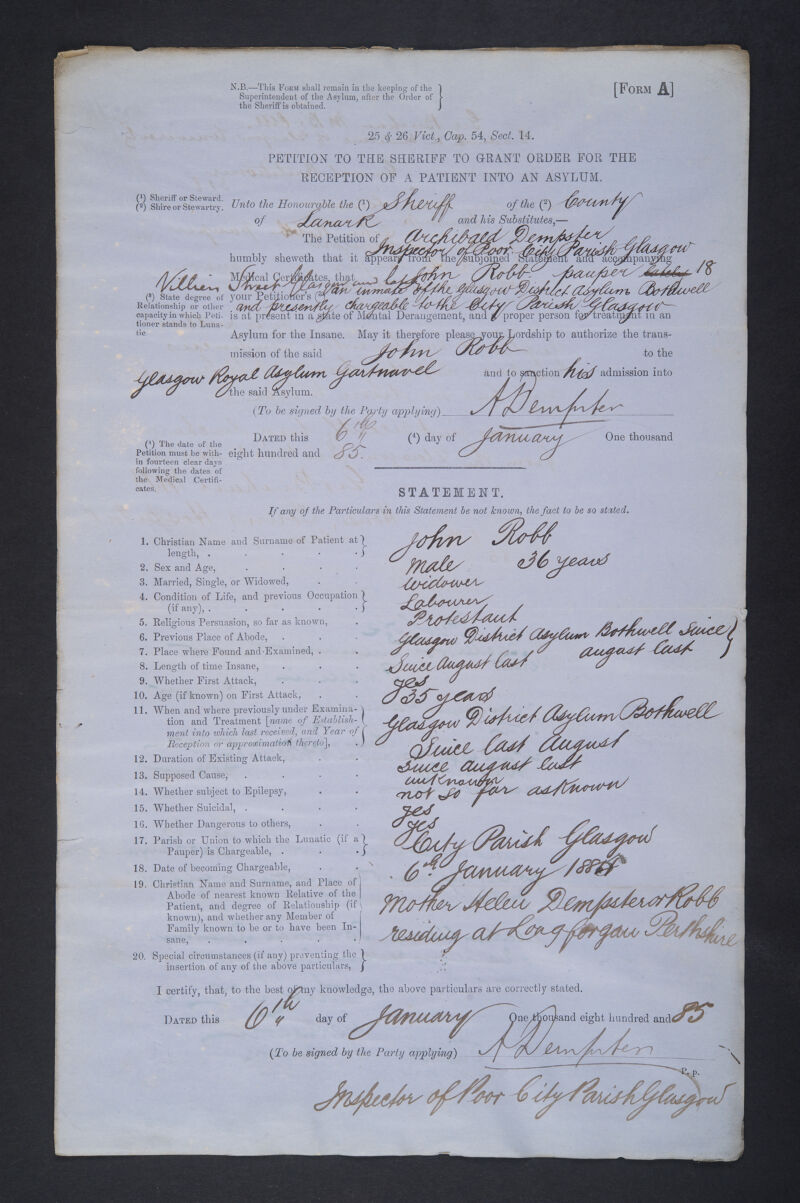 N.B.—This Form shall remain in the keeping of the
Superintendent of the Asylum, after the Order of
the Sheriff is obtained.
[Form A]
25 & 26 Vict., Cap. 54, Sect. 14.
PETITION TO THE SHERIFF TO GRANT ORDER FOR THE
RECEPTION OF A PATIENT INTO AN ASYLUM.
(1) Sheriff or Steward.
(2) Shire or Stewartry.
Unto the Honourable the (1) Sheriff of the (2) County
of Lanark and his Substitutes,—
The Petition of Archibald Dempster
Inspector of Poor City Parish Glasgow
humbly sheweth that it appears from the subjoined Statement and accompanying
Medical Certificates, that John Robb pauper 18
Villiers Street Glasgow and lately
(3) State degree of Relationship or other capacity in which Petitioner stands to Lunatic
your Petitioner's (3) an inmate of the Glasgow District Asylum Bothwell
and presently chargeable to the City Parish Glasgow
is at present in a state of Mental Derangement, and a proper person for treatment in an
Asylum for the Insane. May it therefore please your Lordship to authorize the trans-
mission of the said John Robb to the
Glasgow Royal Asylum Gartnavel and to sanction his admission into
the said Asylum.
(To be signed by the Party applying) A Dempster
Dated this 6th (4) day of January One thousand
eight hundred and 85.
(4) The date of the
Petition must be with-
in fourteen clear days
following the dates of
the Medical Certifi-
cates.
STATEMENT.
If any of the Particulars in this Statement be not known, the fact to be so stated.
1. Christian Name and Surname of Patient at
length, John Robb
2. Sex and Age, Male 36 years
3. Married, Single, or Widowed, Widower
4. Condition of Life, and previous Occupation
(if any), Labourer
5. Religious Persuasion, so far as known, Protestant
6. Previous Place of Abode, Glasgow District Asylum Bothwell Since
7. Place where Found and Examined, august last
8. Length of time Insane, Since August last
9. Whether First Attack, yes
10. Age (if known) on First Attack, 35 years
11. When and where previously under Examina-
tion and Treatment [name of Establish-
ment into which last received, and Year of
Reception or approximation thereto], Glasgow District Asylum Bothwell
Since last August
12. Duration of Existing Attack, Since august last
13. Supposed Cause, unknown
14. Whether subject to Epilepsy, not so far as known
15. Whether Suicidal, yes
16. Whether Dangerous to others, yes
17. Parish or Union to which the Lunatic (if a
Pauper) is Chargeable, City Parish Glasgow
18. Date of becoming Chargeable, 6th January
19. Christian Name and Surname, and Place of
Abode of nearest known Relative of the
Patient, and degree of Relationship (if
known), and whether any Member of
Family known to be or to have been In-
sane, Mother Helen Dempster or Robb
residing at Longforgan Perthshire
20. Special circumstances (if any) preventing the
insertion of any of the above particulars,
I certify, that, to the best of my knowledge, the above particulars are correctly stated.
Dated this 6th day of January One thousand eight hundred and 85
(To be signed by the Party applying) A Dempster
P. p.
Inspector of Poor City Parish Glasgow